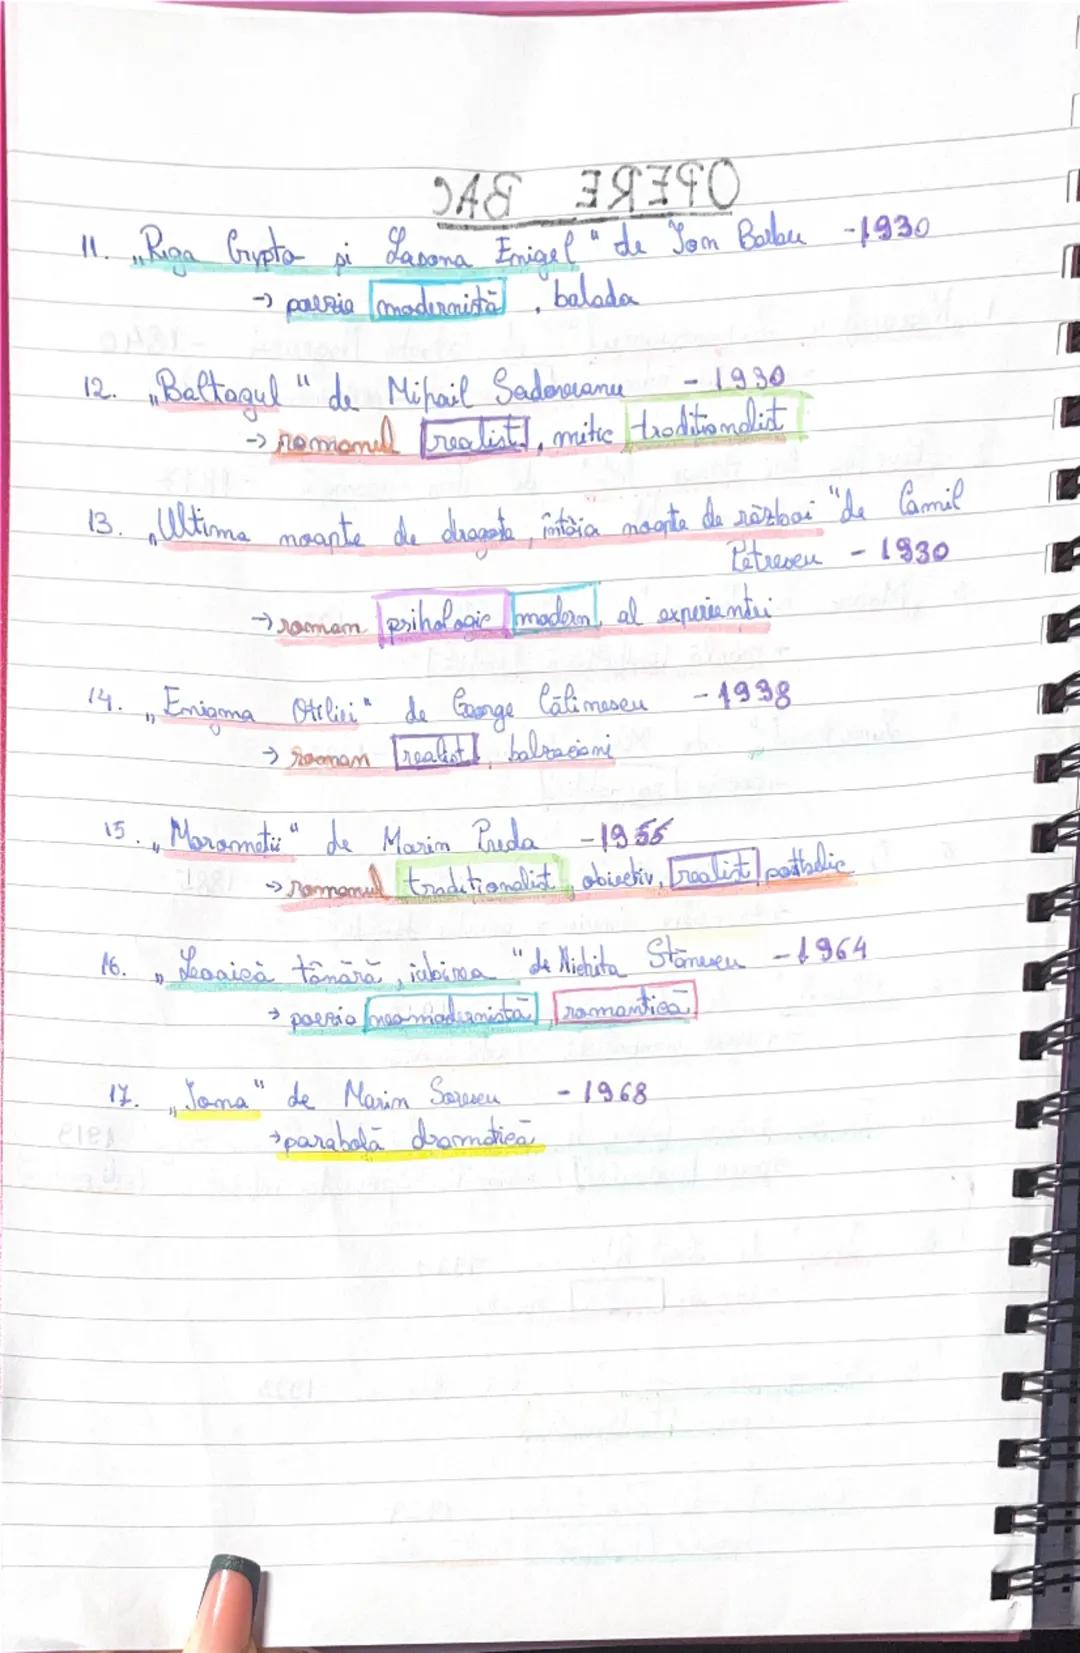 OPERE BAC
11. „Riga Crypto și Lapona Enigel" de Ion Barbu - 1930
→ poezia modernistă, balada
12. „Baltagul" de Mihail Sadoveanu - 1930
→ romanul realist, mitic traditionalist
13. „Ultima noapte de dragoste, întâia noapte de război" de Camil
Petrescu - 1930
→ roman psihologic modern, al experientei
14. „Enigma Otiliei" de George Călinescu - 1938
→ roman realist, balzacian
15. „Morometii" de Marin Preda - 1955
→ romanul traditionalist, obiectiv, realist postbelic
16. „Leoaică tânără, iubirea" de Nichita Stănescu - 1964
→ poezia neomodernistă, romantică
17. „Iona" de Marin Sorescu - 1968
→ parabolă dramatică